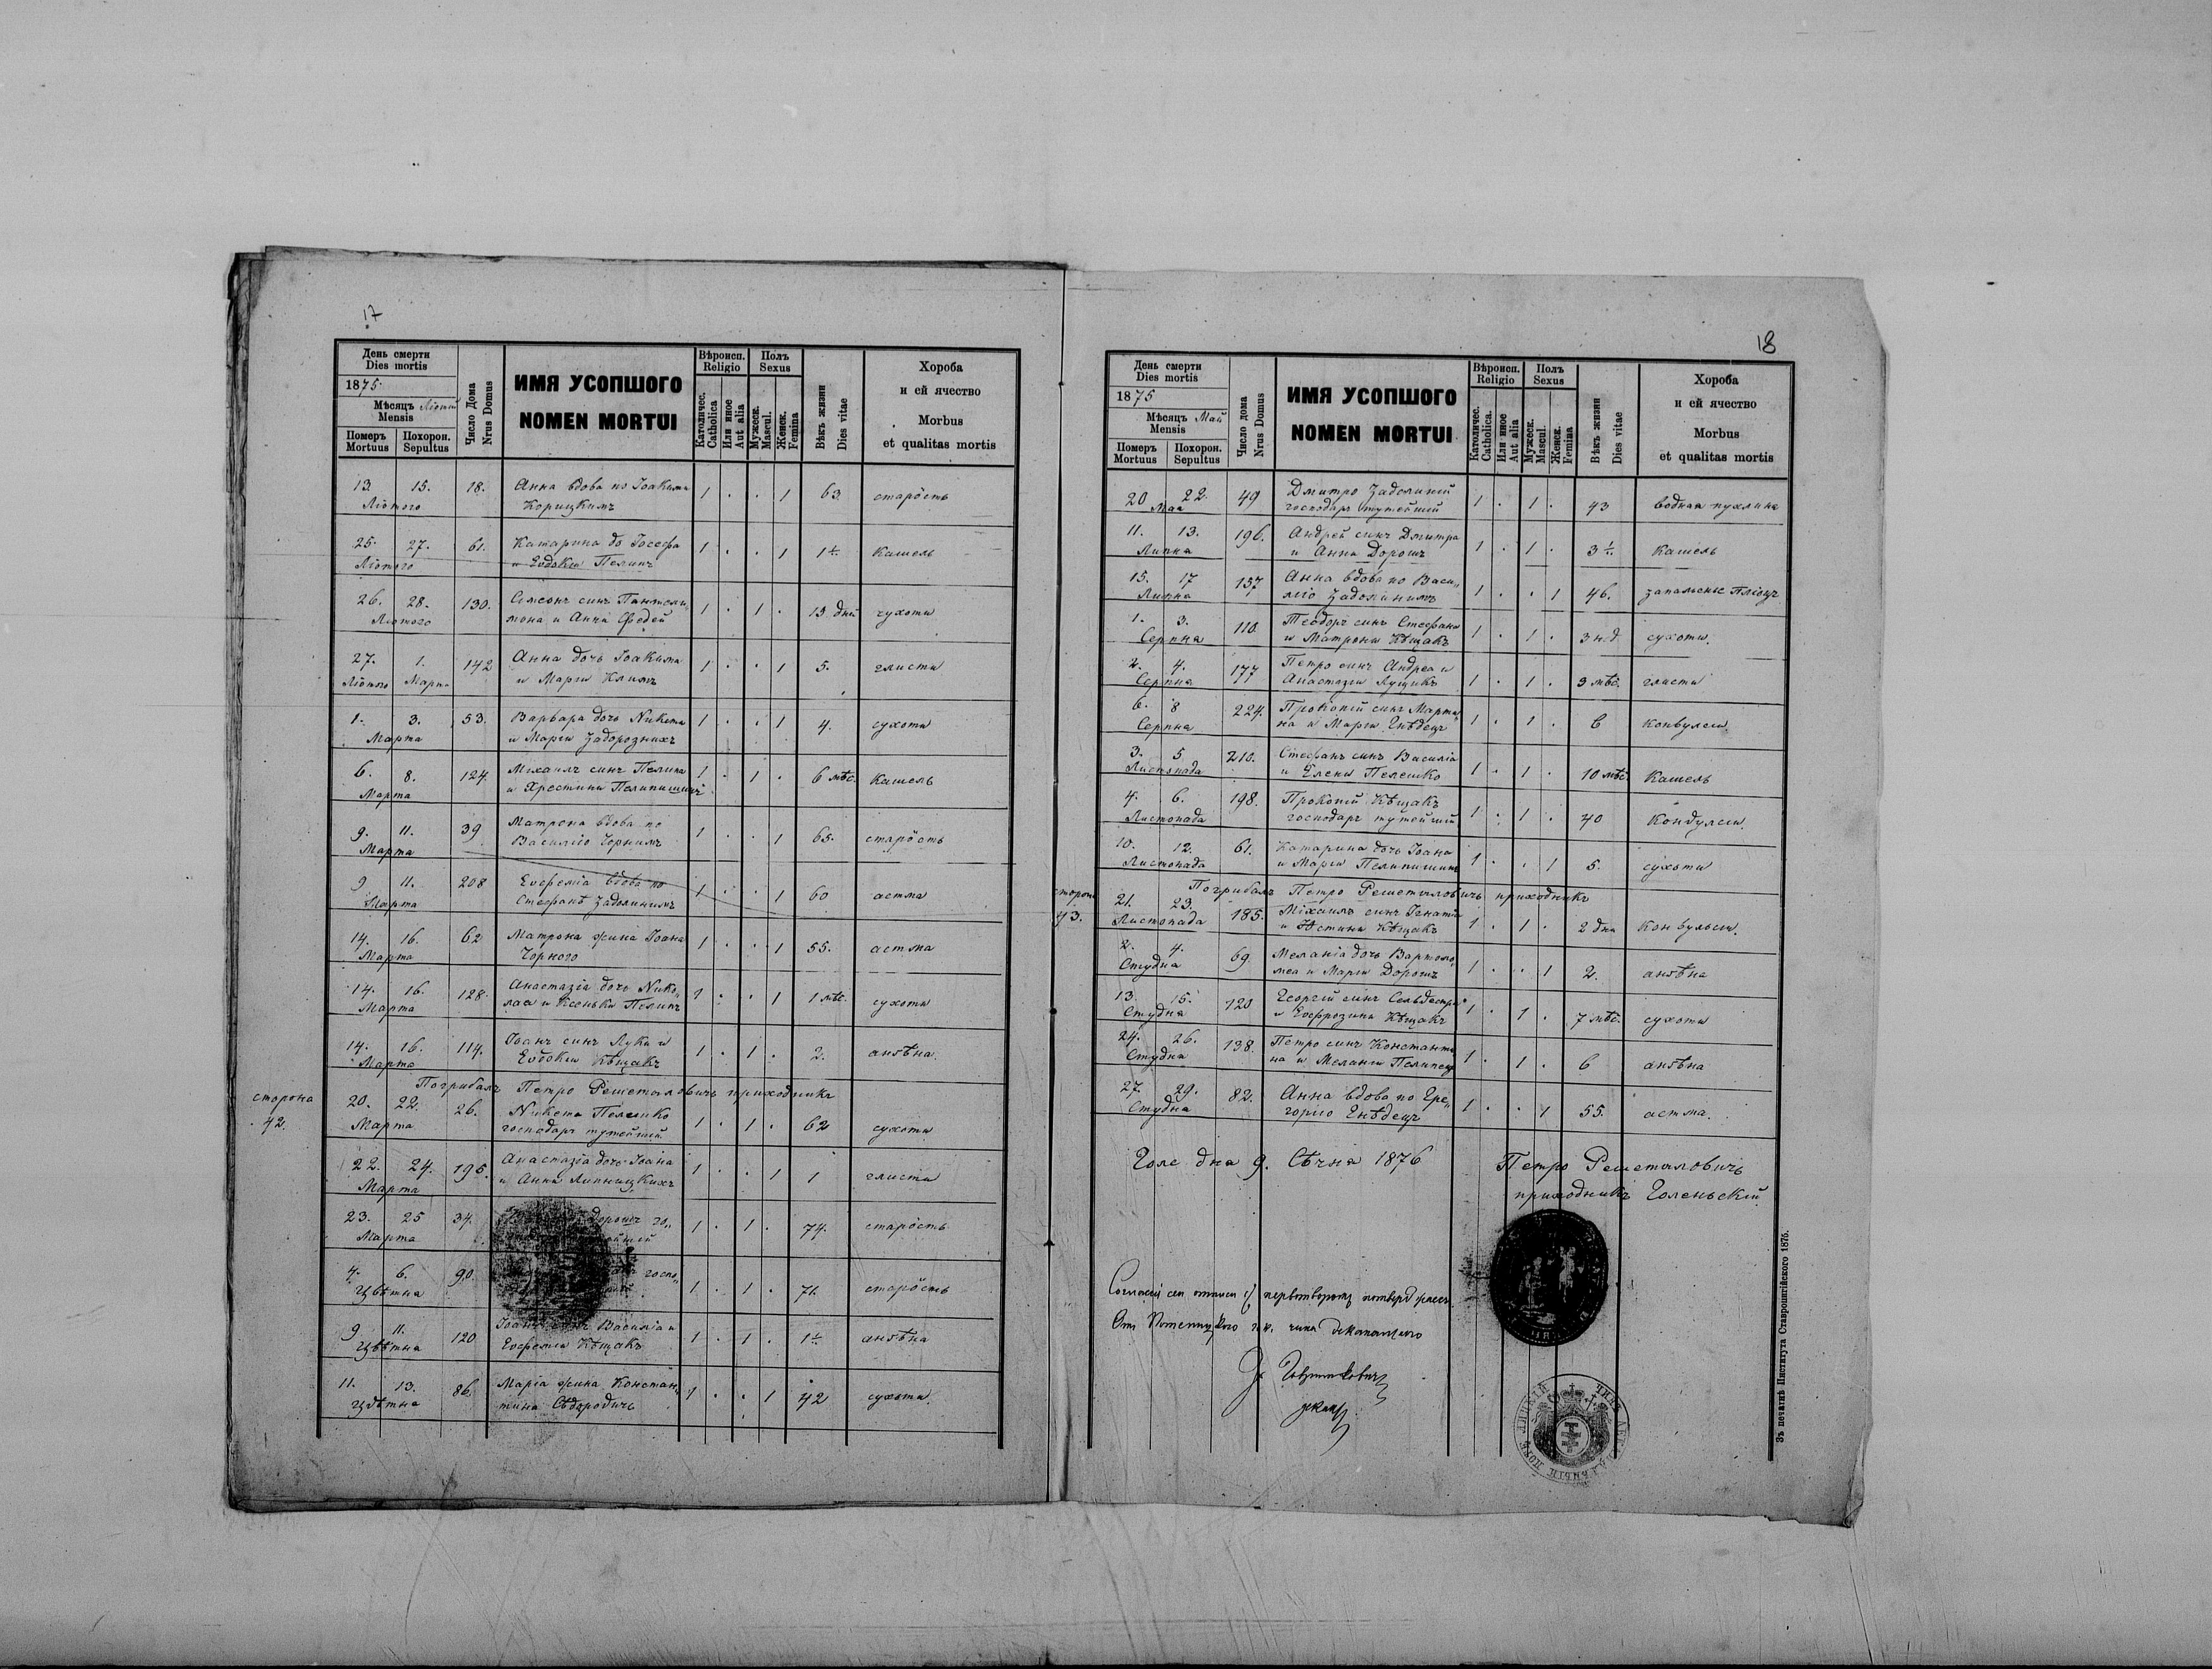 17
День смерти
Dies mortis
1875.
Мѣсяцъ Лютый
Mensis
Померъ
Mortuus
Похорон.
Sepultus
Число Дома
Nrus Domus
ИМЯ УСОПШОГО
NOMEN MORTUI
Вѣроисп.
Religio
Католичес.
Catholica
Или иное
Aut alia
Полъ
Sexus
Мужеск.
Mascul.
Женск.
Femina
Вѣкъ жизни
Dies vitae
Хороба
и ей ячество
Morbus
et qualitas mortis
13. 15. 18. Анна вдова по Іоакима 1 . . 1 63 старость
Лютого Корицкимъ
25. 27. 61. Катарина до Іосефа 1 . . 1 кашель
Лютого и Евдокіи Пелипъ
26. 28. 130. Симеонъ синъ Пантели„ 1 . 1 . 13 дній сухоты
Лютого мона и Анни Федей
27. 1. 142 Анна дочь Іоакима 1 . . 1 5. глисты
Лютого Марта и Маріи Климъ
1. 3. 53. Варвара дочь Никиты 1 . . 1 4. сухоты
Марта и Маріи Задорозныхъ
6. 8. 124. Михаилъ синъ Пелипа 1 . 1 . 6 мѣс. кашель
Марта и Христины Пелипишинъ
9. 11. 39 Матрона вдова по 1 . . 1 65. старость
Марта Василію Чорнимъ
9 11. 208 Евфемія вдова по 1 . . 1 60 астма
Марта Стефанѣ Задолинимъ
14. 16. 62 Матрона жина Іоана 1 . . 1 55. астма
Марта Чорного
14. 16. 128. Анастазія дочь Нико„ 1 . . 1 1 мѣс. сухоты
Марта лая и Ксеньки Пелипъ
14. 16. 114. Іоанъ синъ Луки и 1 . 1 . 2. ангѣна.
Марта Евдокіи Кѣщакъ
Погрибалъ Петро Решетиловичъ приходникъ
сторона
42.
20. 22. 26. Никита Пелешко 1 . 1 . 62 сухоты
Марта господаръ тутейшій
22. 24. 195. Анастазія дочь Іоана 1 . . 1 1 глисты
Марта и Анни Липницкихъ
23. 25 34. Дорошъ го„ 1 . 1 . 74. старость
Марта
4. 6. 90. госпо„ 1 . 1 . 71. старость
Цвѣтна
9 11. 120 Іоанъ синъ Василія и 1 . 1 . ангѣна
Цвѣтна Евфеміи Кѣщакъ
11. 13. 86. Марія жина Констан„ 1 . . 1 42 сухоты.
Цвѣтна тина
18
День смерти
Dies mortis
1875
Мѣсяцъ Май
Mensis
Померъ
Mortuus
Похорон.
Sepultus
Число дома
Nrus Domus
ИМЯ УСОПШОГО
NOMEN MORTUI
Вѣроисп.
Religio
Католичес.
Catholica.
Или иное
Aut alia
Полъ
Sexus
Мужеск.
Mascul.
Женск.
Femina
Вѣкъ жизни
Dies vitae
Хороба
и ей ячество
Morbus
et qualitas mortis
20 22. 49 Дмитро Задолиній 1 . 1 . 43 водная пухлина
Мая господаръ тутейшій
11. 13. 196. Андрей синъ Дмитра 1 . 1 . кашель
Липна и Анна Дорошъ
15. 17 157 Анна вдова по Васи„ 1 . . 1 46. запаленье плюцъ
Липна лію Задолинимъ
1. 3. 110. Теодоръ синъ Стефана 1 . 1 . 3 н.д сухоты.
Серпна и Матроны Кѣщакъ
2. 4. 177 Петро синъ Андрея и 1 . 1 . 3 мѣс. глисты
Серпна Анастазіи Лущикъ
6. 8 224. Прокопій синъ Марты„ 1 . 1 . 6 конвулсіи.
Серпна на и Маріи Гнѣдецъ
3. 5 210. Стефанъ синъ Василія 1 . 1 . 10 мѣс. кашель
Листопада и Елены Пелешко
4. 6. 198. Прокопій Кѣщакъ 1 . 1 . 40 конвулсіи.
Листопада господаръ тутейшій
10. 12. 61. Катарина дочь Іоана 1 . . 1 5. сухоты
Листопада и Маріи Пелипишинъ
Погрибалъ Петро Решетиловичъ приходникъ
сторона
43.
21. 23. 185. Міхаилъ синъ Ігнатія 1 . 1 . 2 дна конвулсіи.
Листопада и Юстины Кѣщакъ
2. 4. 69. Меланія дочь Вартоло„ 1 . . 1 2. ангѣна
Студна мея и Маріи Дорошъ
13. 15. 120 Георгій синъ Сельвестра 1 . 1 . 7 мѣс. сухоты
Студна и Евфрозины Кѣщакъ
24. 26. 138. Петро синъ Константи 1 . 1 . 6 ангѣна
Студна на и Меланіи Пелипецъ
27. 29. 82. Анна вдова по Гре„ 1 . . 1 55. астма.
Студна горію Гнѣдецъ
Голе дна 9. Сѣчна 1876
Петро Решетиловичъ
приходникъ Голеньскій
деканъ
Зъ печатнѣ Института Ставропигійского 1875.